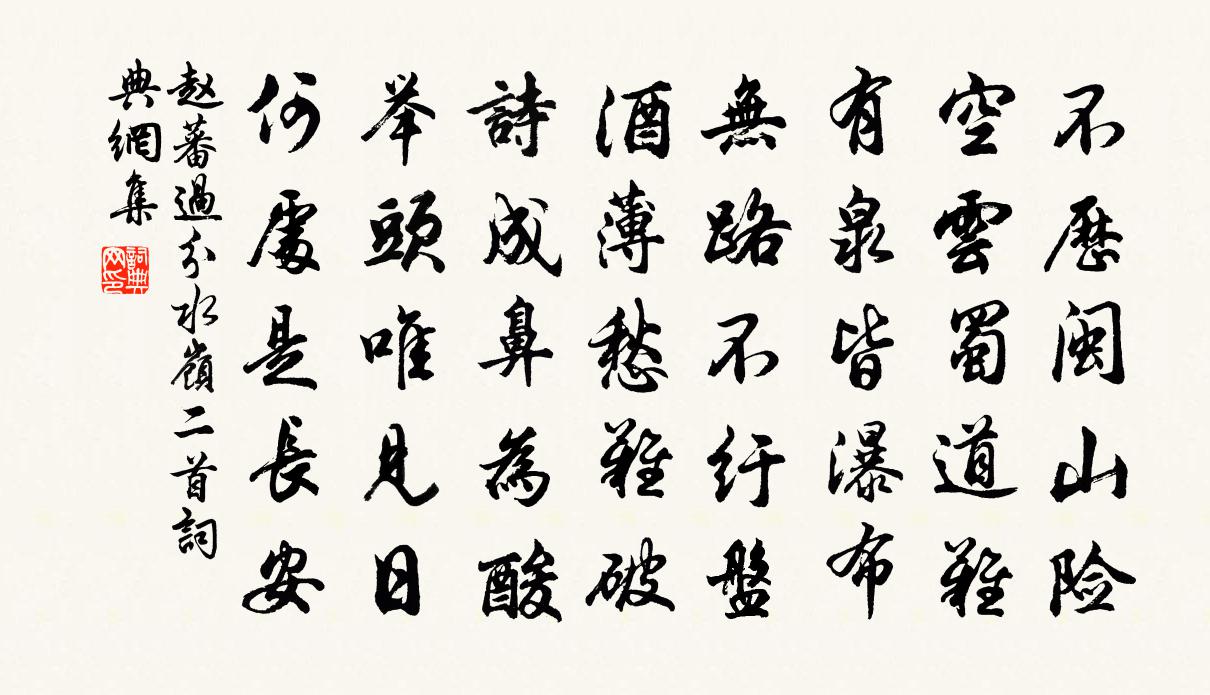 不歷閩山險
空雲蜀道難
有泉皆瀑布
無路不紆盤
酒薄愁難破
詩成鼻為酸
举頭唯見日
何處是長安
赵蕃過分水嶺二首詞
典網集
詞典
网印